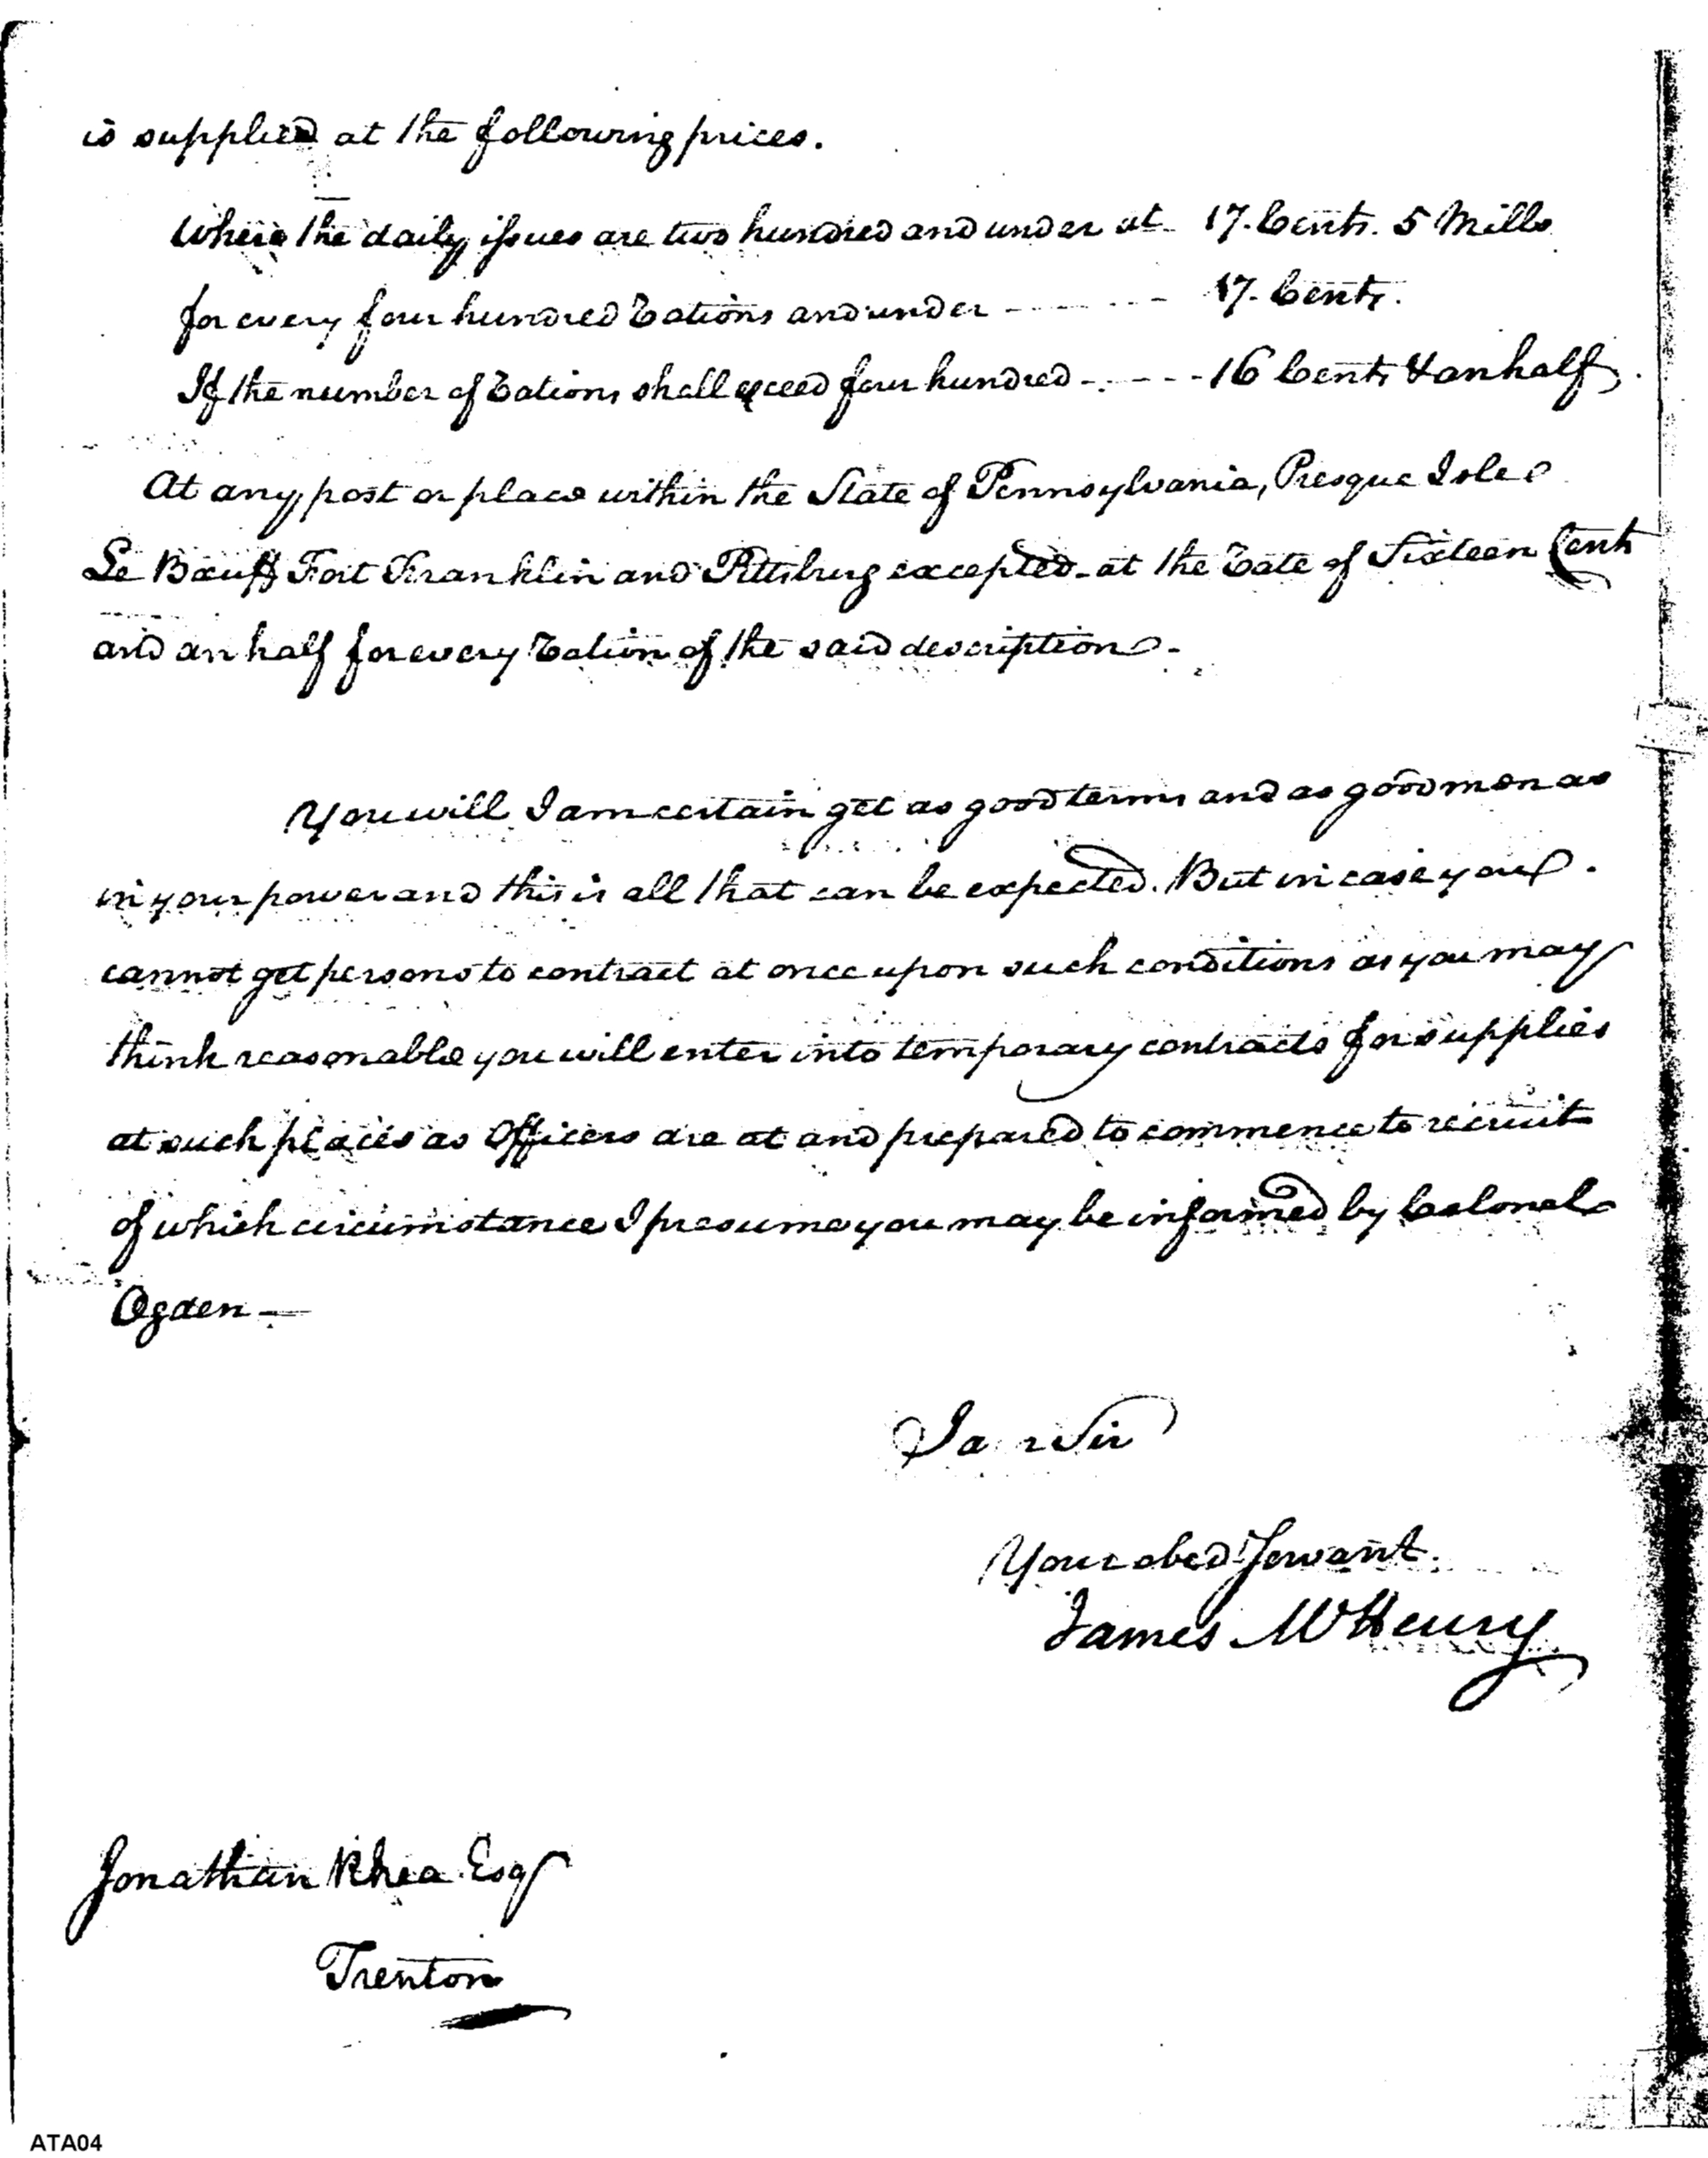 is supplied at the following prices.
Where the daily issues are two hundred and under at 17. Cents. 5 Mills
for every four hundred Rations and under - - - - - - 17. Cents.
If the number of Rations shall exceed four hundred - - - - - 16 Cents & an half.
At any post or place within the State of Pennsylvania, Presque Isle
Le Bœuff Fort Franklin and Pittsburg excepted - at the Rate of Sixteen Cents
and an half for every Ration of the said description -
You will I am certain get as good terms and as good men as
in your power and this is all that can be expected. But in case you
cannot get persons to contract at once upon such conditions as you may
think reasonable you will enter into temporary contracts for supplies
at such places as Officers are at and prepared to commence to recruit
of which circumstance I presume you may be informed by Colonel
Ogden —
I am Sir
Your obed Servant.
James McHenry
Jonathan Rhea Esqr
Trenton
ATA04